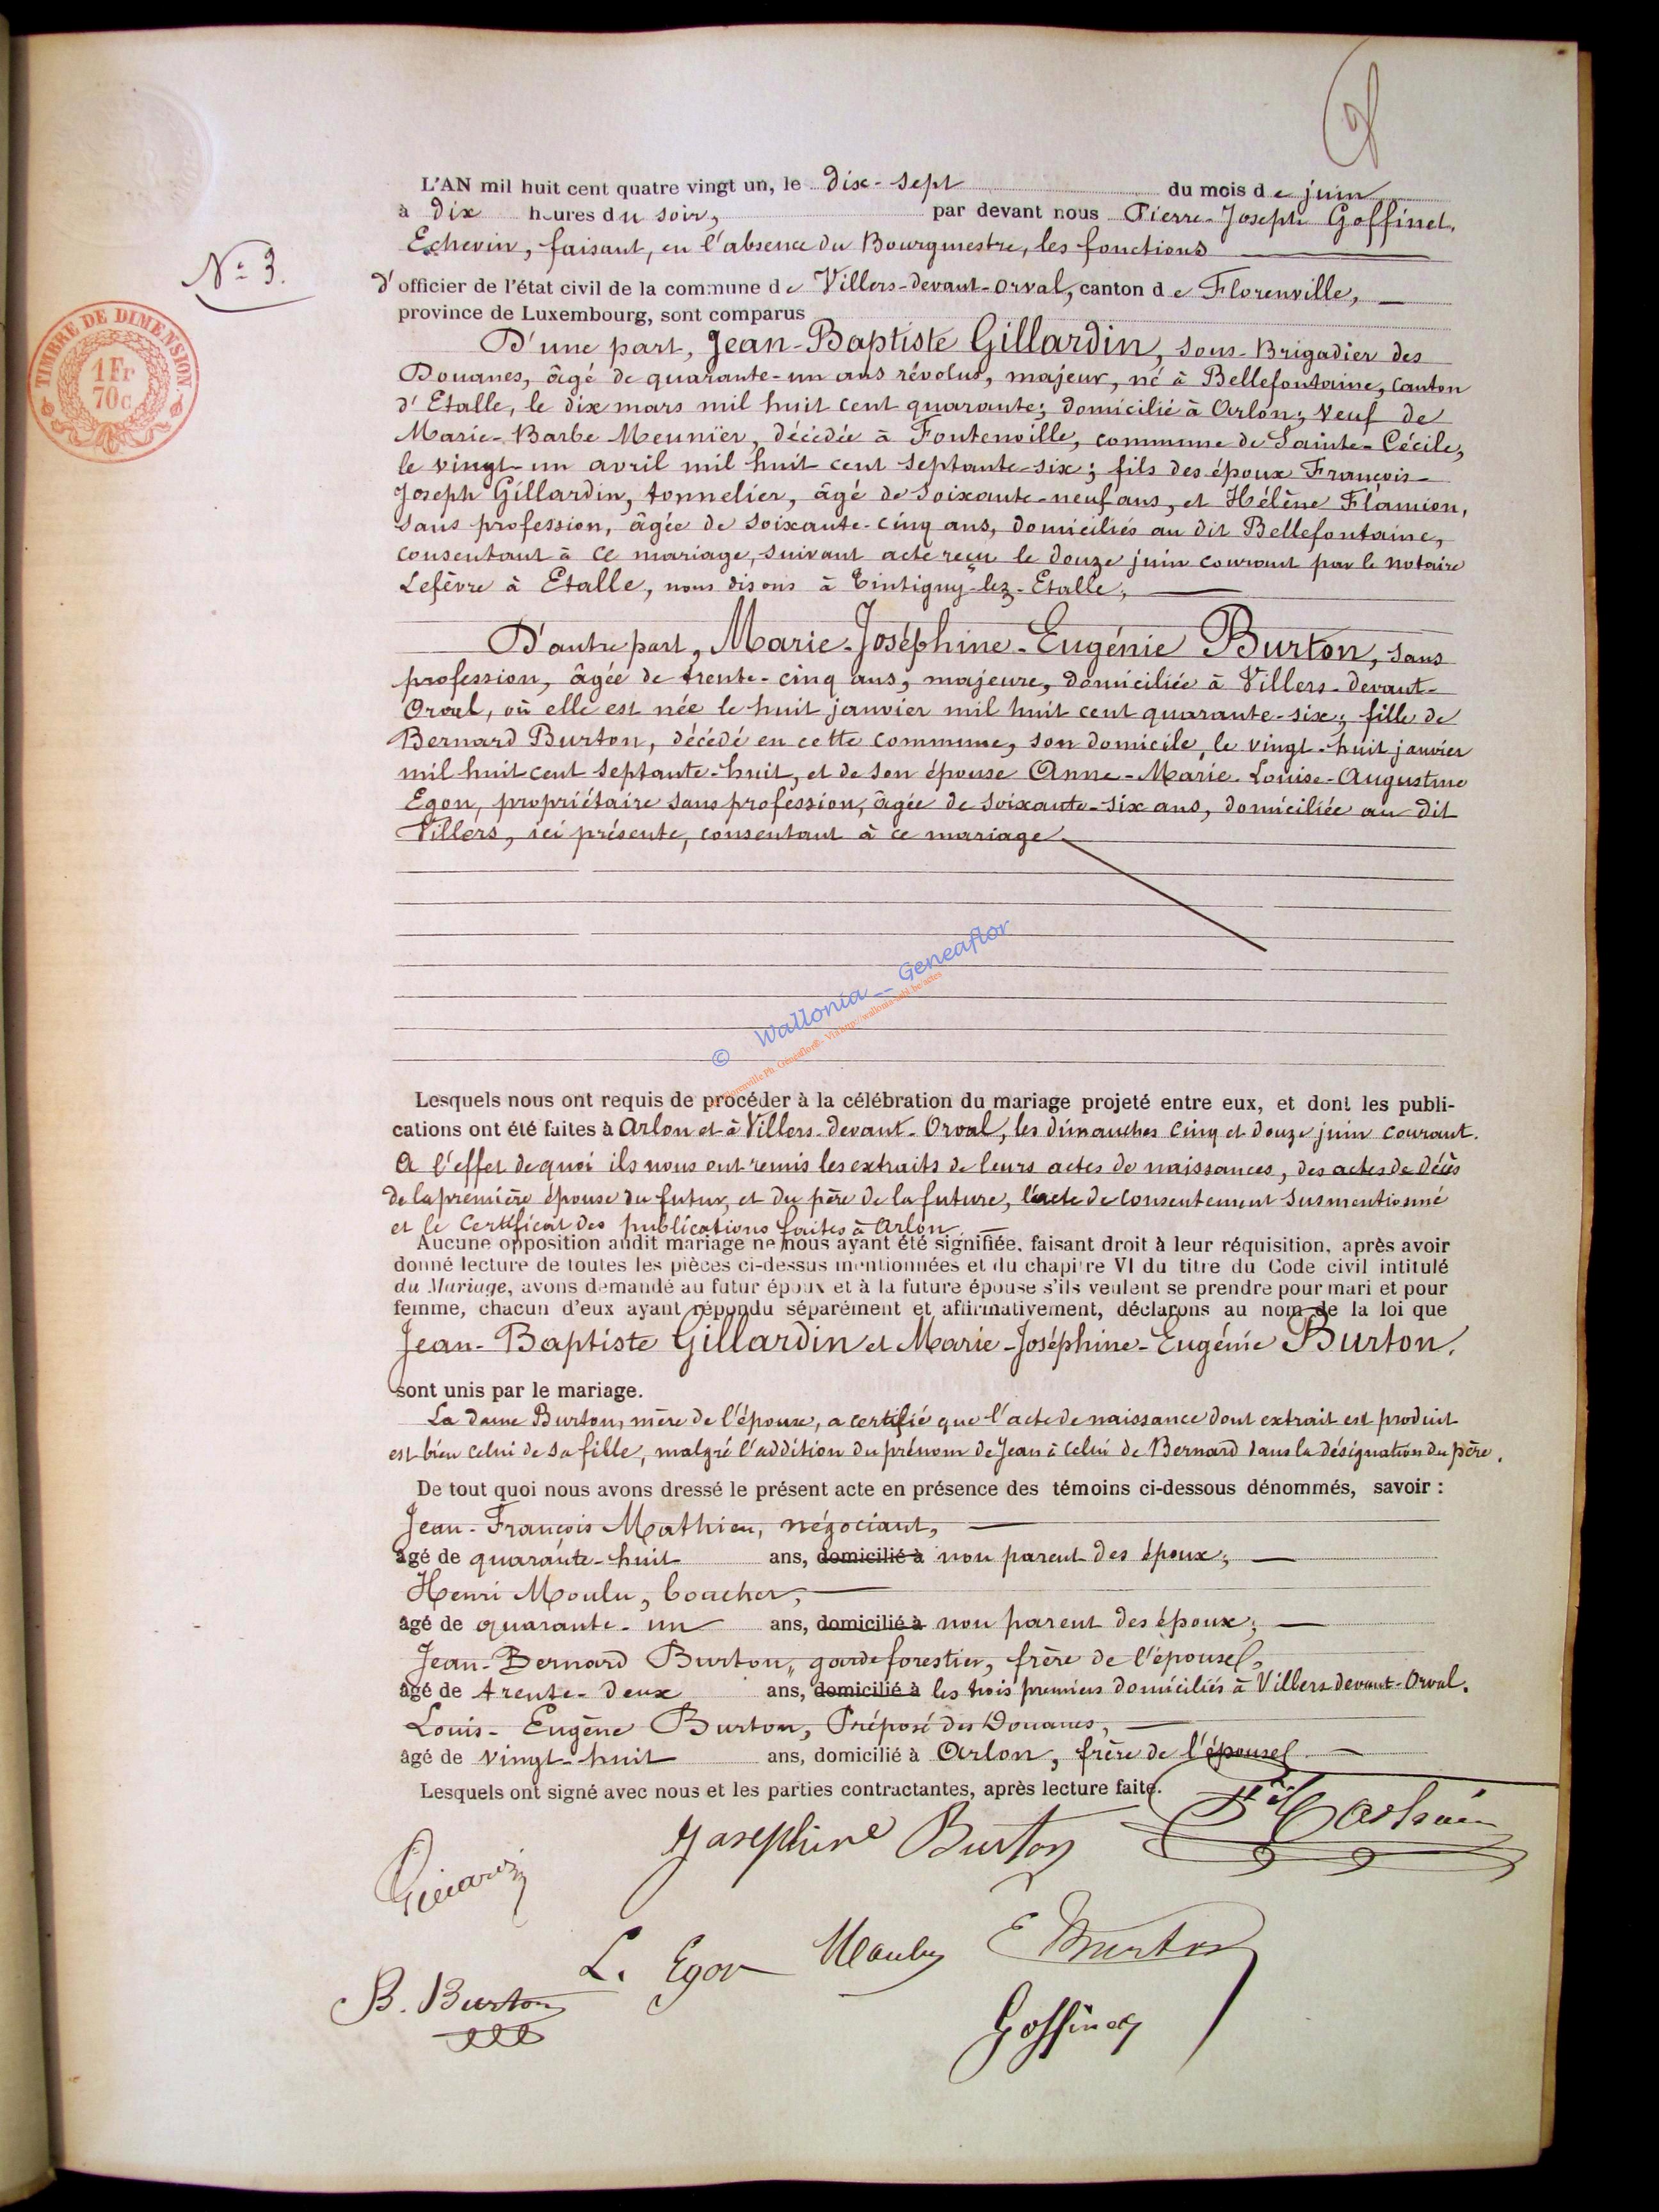 L'AN mil huit cent quatre vingt un, le dix-sept du mois de juin
à dix heures du soir, par devant nous Pierre-Joseph Goffinet,
Echevin, faisant, en l'absence du Bourgmestre, les fonctions
N° 3.
d'officier de l'état civil de la commune de Villers-devant-Orval, canton de Florenville,
province de Luxembourg, sont comparus
TIMBRE DE DIMENSION.
1 Fr
70c
D'une part, Jean-Baptiste Gillardin, sous-Brigadier des
Douanes, âgé de quarante-un ans révolus, majeur, né à Bellefontaine, canton
d'Etalle, le dix mars mil huit cent quarante; domicilié à Arlon; veuf de
Marie-Barbe Meunier, décédée à Fontenoille, commune de Sainte-Cécile,
le vingt-un avril mil huit cent septante-six; fils des époux François-
Joseph Gillardin, tonnelier, âgé de soixante-neuf ans, et Hélène Flamion,
sans profession, âgée de soixante-cinq ans, domiciliés au dit Bellefontaine,
consentant à ce mariage, suivant acte reçu le douze juin courant par le notaire
Lefèvre à Etalle, nous disons à Tintigny-lez-Etalle,
D'autre part, Marie-Joséphine-Eugénie Burton, sans
profession, âgée de trente-cinq ans, majeure, domiciliée à Villers-devant-
Orval, où elle est née le huit janvier mil huit cent quarante-six; fille de
Bernard Burton, décédé en cette commune, son domicile, le vingt-huit janvier
mil huit cent septante-huit, et de son épouse Anne-Marie-Louise-Augustine
Egon, propriétaire sans profession, âgée de soixante-six ans, domiciliée au dit
Villers, ici présente, consentant à ce mariage
© Wallonia __ Geneaflor
Lesquels nous ont requis de procéder à la célébration du mariage projeté entre eux, et dont les publi-
cations ont été faites à Arlon et à Villers-devant-Orval, les dimanches cinq et douze juin courant.
A l'effet de quoi ils nous ont remis les extraits de leurs actes de naissances, des actes de décès
de la première épouse du futur, et du père de la future, l'acte de consentement susmentionné
et le certificat des publications faites à Arlon.
Aucune opposition audit mariage ne nous ayant été signifiée, faisant droit à leur réquisition, après avoir
donné lecture de toutes les pièces ci-dessus mentionnées et du chapitre VI du titre du Code civil intitulé
du Mariage, avons demandé au futur époux et à la future épouse s'ils veulent se prendre pour mari et pour
femme, chacun d'eux ayant répondu séparément et affirmativement, déclarons au nom de la loi que
Jean-Baptiste Gillardin et Marie-Joséphine-Eugénie Burton.
sont unis par le mariage.
La dame Burton, mère de l'épouse, a certifié que l'acte de naissance dont extrait est produit
est bien celui de sa fille, malgré l'addition du prénom de Jean à celui de Bernard dans la désignation du père.
De tout quoi nous avons dressé le présent acte en présence des témoins ci-dessous dénommés, savoir :
Jean-François Mathieu, négociant,
âgé de quarante-huit ans, domicilié à non parent des époux;
Henri Moulu, boucher,
âgé de quarante-un ans, domicilié à non parent des époux;
Jean-Bernard Burton, garde forestier, frère de l'épouse,
âgé de trente-deux ans, domicilié à les trois premiers domiciliés à Villers-devant-Orval.
Louis-Eugène Burton, Préposé des Douanes,
âgé de vingt-huit ans, domicilié à Arlon, frère de l'épouse
Lesquels ont signé avec nous et les parties contractantes, après lecture faite.
Joséphine Burton
L. Egon Moulu E Burton
B. Burton
Goffinet